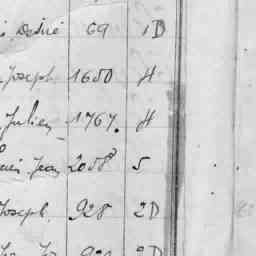 Désiré 69 1D
Joseph 1650 H
Julien 1767. H
Jean 2058 5
Joseph 928 2D
2D